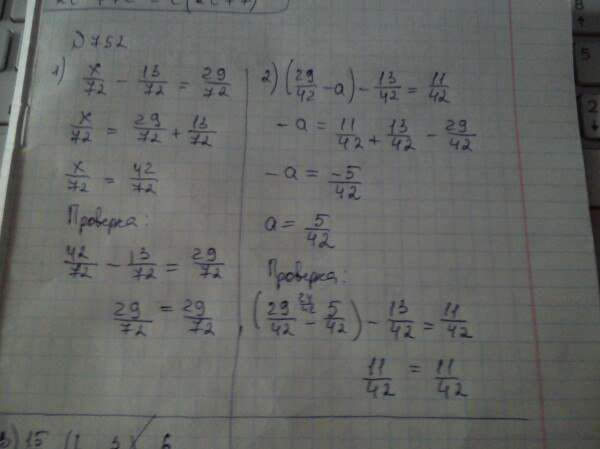 №752
1) x/72 - 13/72 = 29/72
x/72 = 29/72 + 13/72
x/72 = 42/72
Проверка:
42/72 - 13/72 = 29/72
29/72 = 29/72
2) (29/42 - a) - 13/42 = 11/42
-a = 11/42 + 13/42 - 29/42
-a = -5/42
a = 5/42
Проверка:
24/42
(29/42 - 5/42) - 13/42 = 11/42
11/42 = 11/42